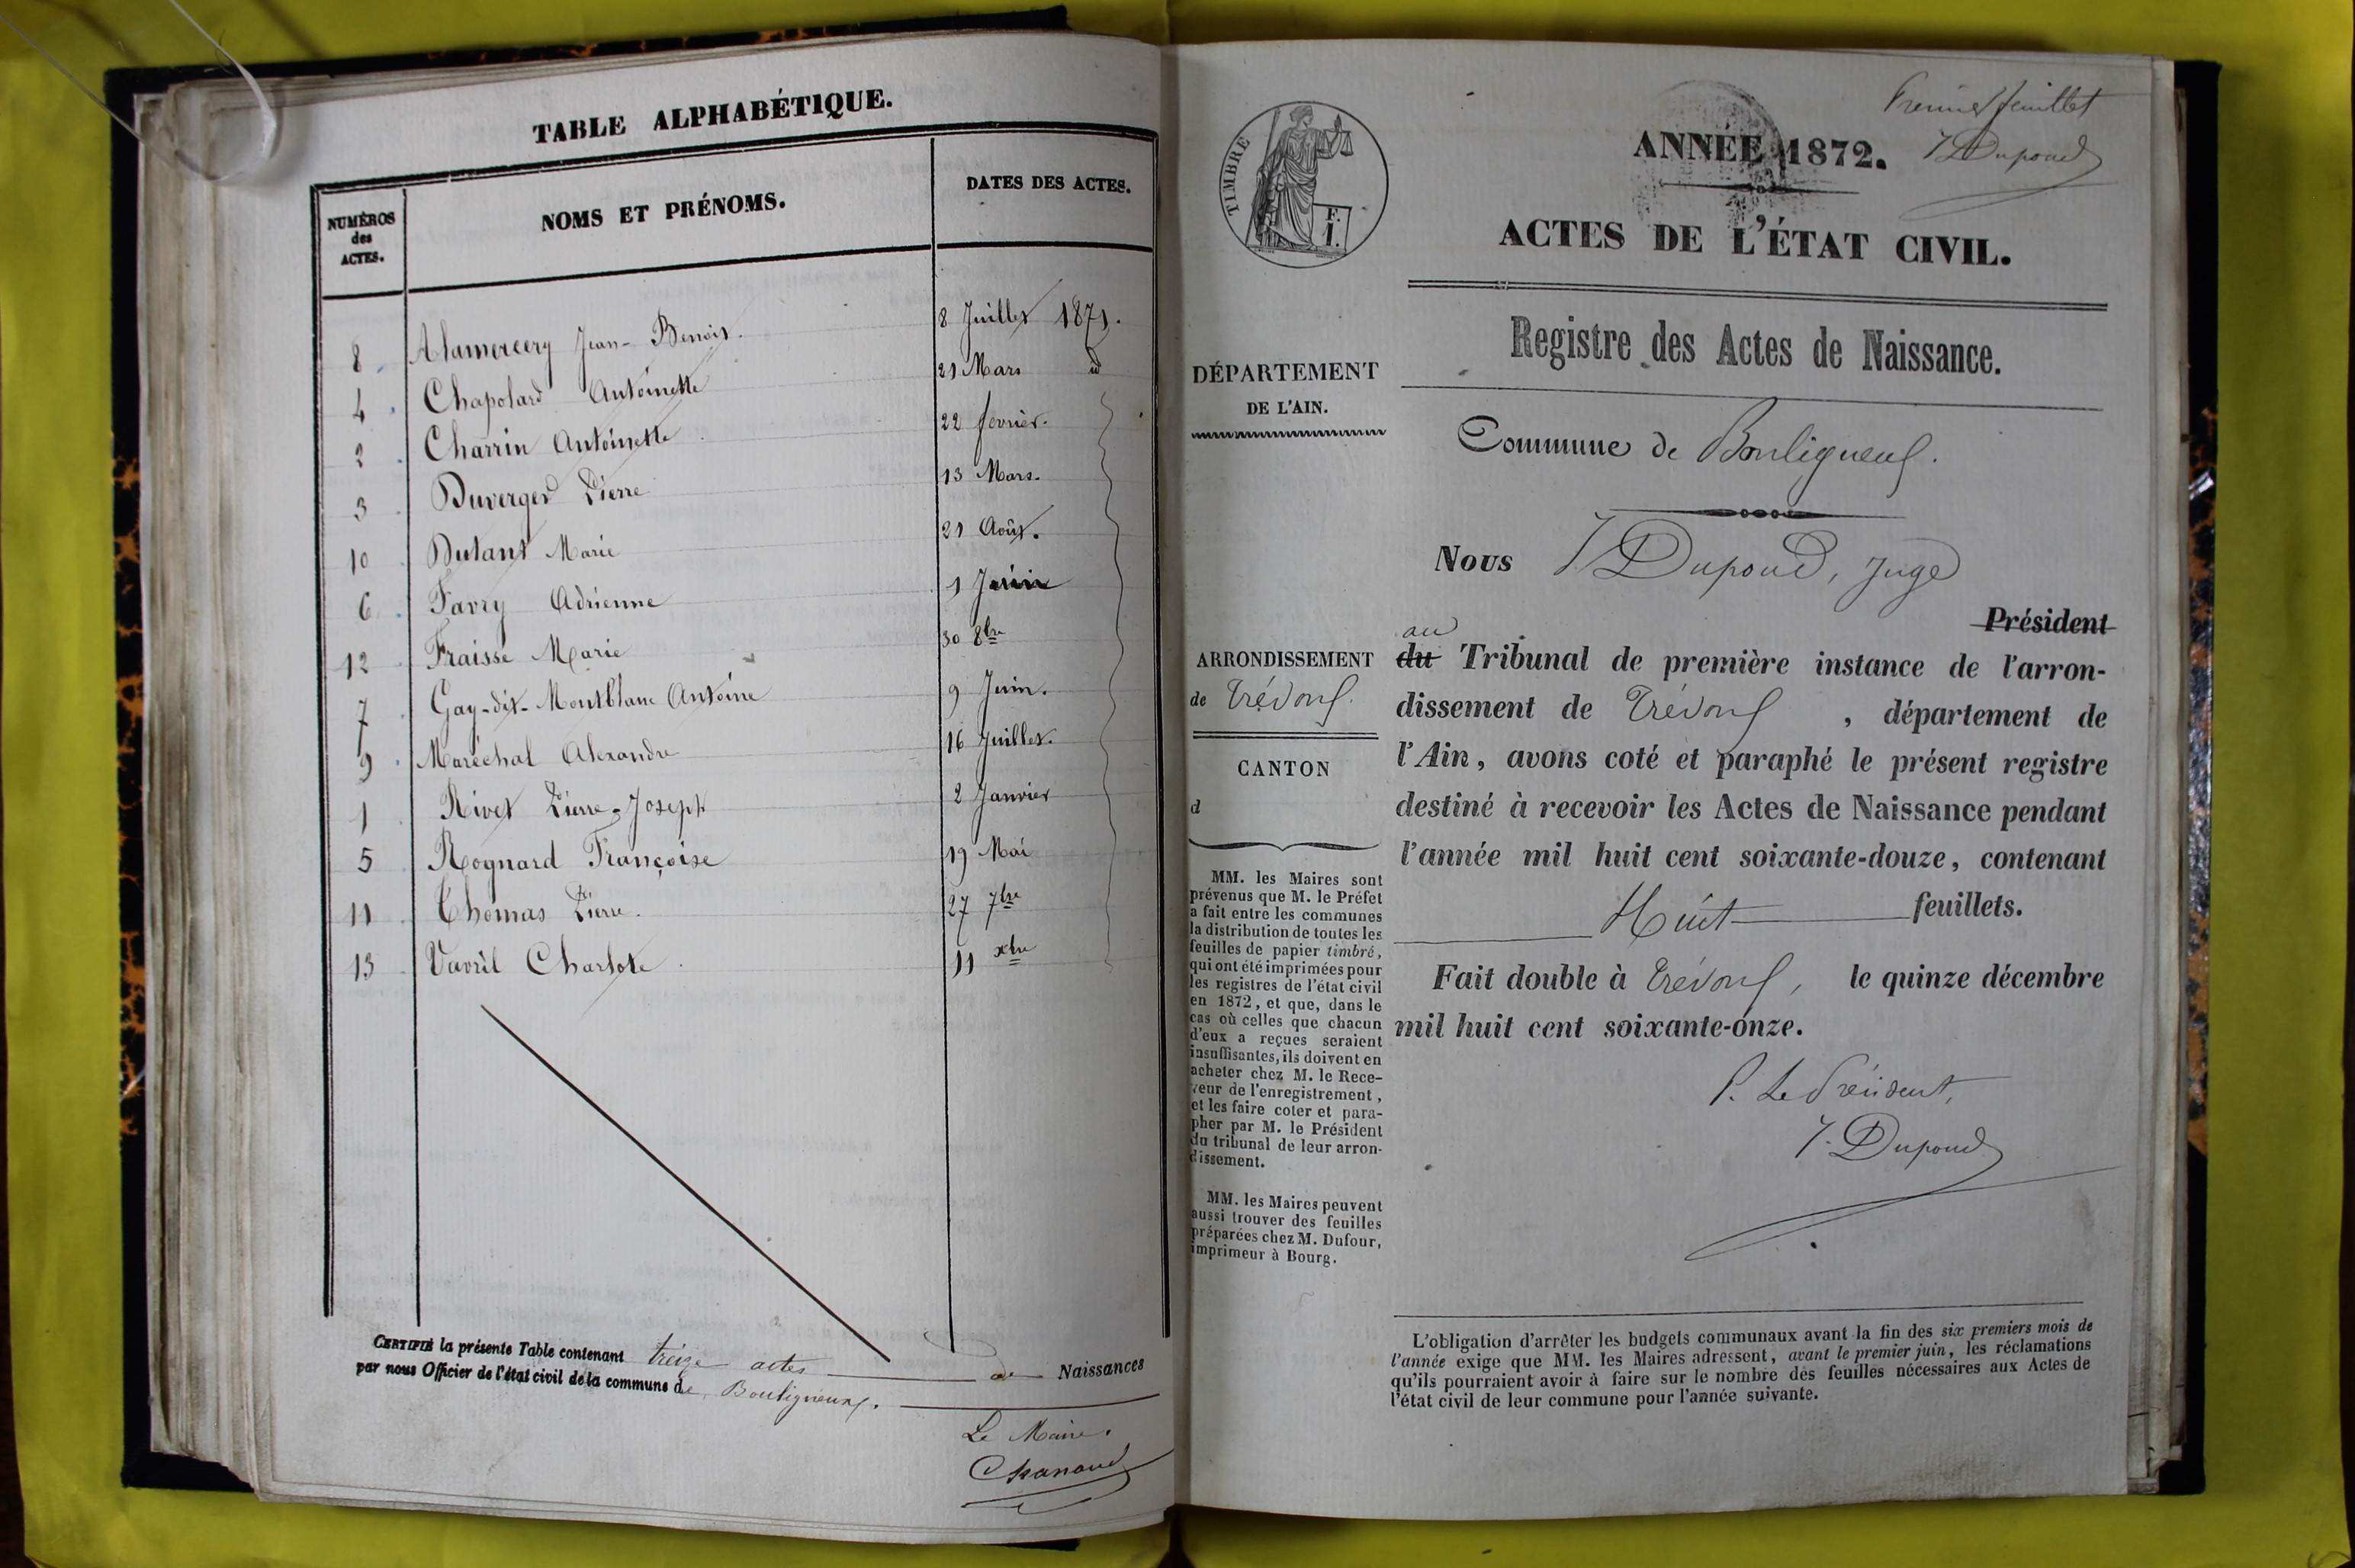 TABLE ALPHABÉTIQUE.
NUMÉROS
des
ACTES.
NOMS ET PRÉNOMS.
DATES DES ACTES.
8 Alamercery Jean-Benoit. 8 Juillet 1871.
4 Chapolard Antoinette 21 Mars id
2 Charrin Antoinette 22 février.
3 Duverger Pierre 13 Mars.
10 Dutant Marie 21 Août.
6 Favry Adrienne 1 Juin
12 Fraisse Marie 30 8bre
7 Gay-dit-Montblanc Antoine 9 Juin.
9 Maréchal Alexandre 16 Juillet.
1 Rivet Pierre-Joseph 2 Janvier
5 Rognard Françoise 19 Mai
11 Thomas Pierre. 27 7bre
13 Vavril Charlote 11 xbre
CERTIFIÉ la présente Table contenant treize actes de Naissances
par nous Officier de l'état civil de la commune de Bouligneux.
Le Maire.
Chanaud
Premier feuillet
J Dupoud
TIMBRE
F.
I.
ANNÉE 1872.
ACTES DE L'ÉTAT CIVIL.
Registre des Actes de Naissance.
DÉPARTEMENT
DE L'AIN.
Commune de Bouligneux.
Nous J Dupoud, Juge
Président
au
du Tribunal de première instance de l'arron-
dissement de Trévoux, département de
l'Ain, avons coté et paraphé le présent registre
destiné à recevoir les Actes de Naissance pendant
l'année mil huit cent soixante-douze, contenant
Huit feuillets.
Fait double à Trévoux, le quinze décembre
mil huit cent soixante-onze.
P. Le Président,
J. Dupoud
ARRONDISSEMENT
de Trévoux.
CANTON
d
MM. les Maires sont
prévenus que M. le Préfet
a fait entre les communes
la distribution de toutes les
feuilles de papier timbré,
qui ont été imprimées pour
les registres de l'état civil
en 1872, et que, dans le
cas où celles que chacun
d'eux a reçues seraient
insuffisantes, ils doivent en
acheter chez M. le Rece-
veur de l'enregistrement,
et les faire coter et para-
pher par M. le Président
du tribunal de leur arron-
dissement.
MM. les Maires peuvent
aussi trouver des feuilles
préparées chez M. Dufour,
imprimeur à Bourg.
L'obligation d'arrêter les budgets communaux avant la fin des six premiers mois de
l'année exige que MM. les Maires adressent, avant le premier juin, les réclamations
qu'ils pourraient avoir à faire sur le nombre des feuilles nécessaires aux Actes de
l'état civil de leur commune pour l'année suivante.